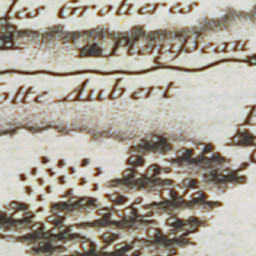 les Grolieres
Plenisseau
otte Aubert